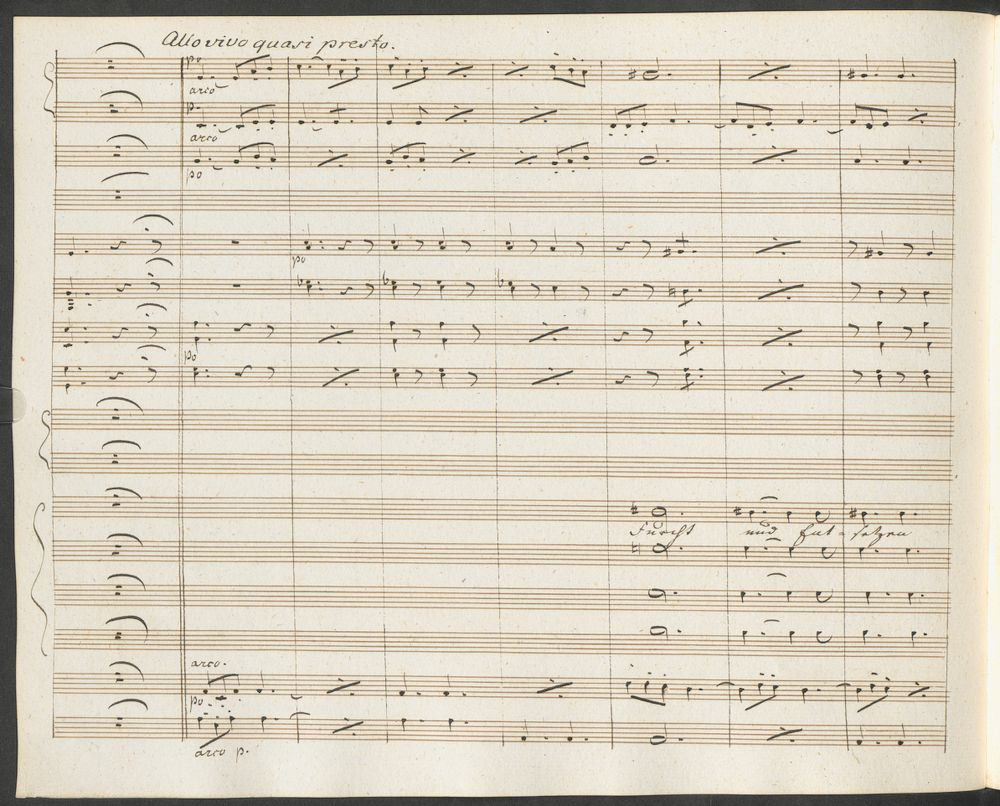 Allo vivo quasi presto.
po
arco
p.
arco
po
po
po
Furcht und Ent-setzen
arco.
po
arco p.